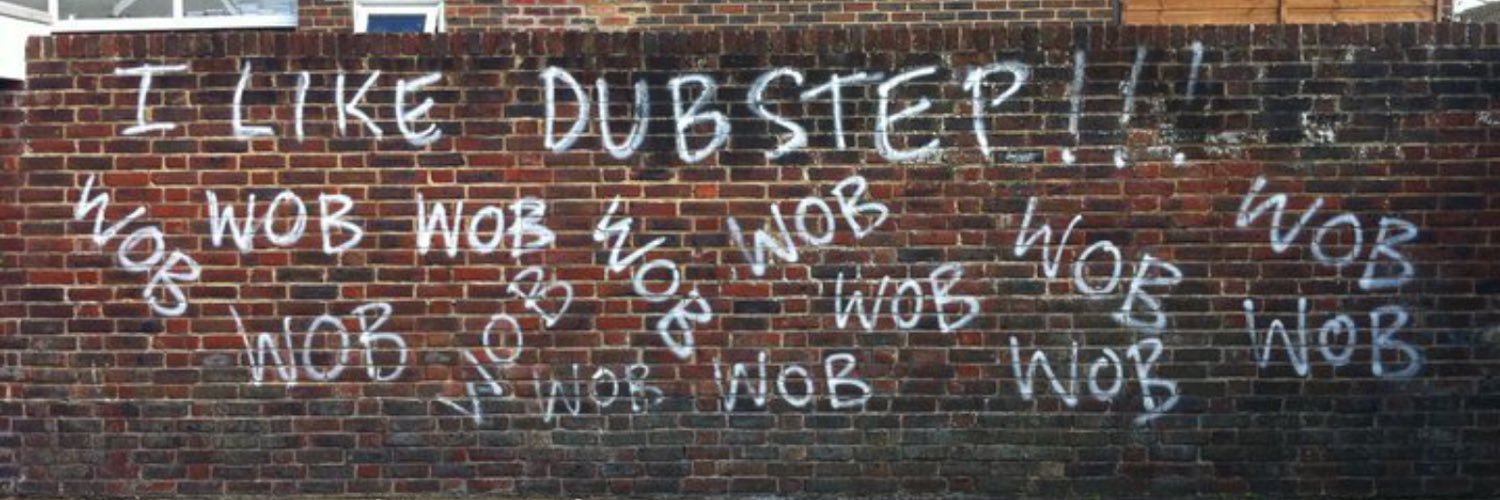 I LIKE DUBSTEP!!!
WOB WOB WOB WOB WOB WOB WOB
WOB WOB WOB WOB
WOB WOB WOB